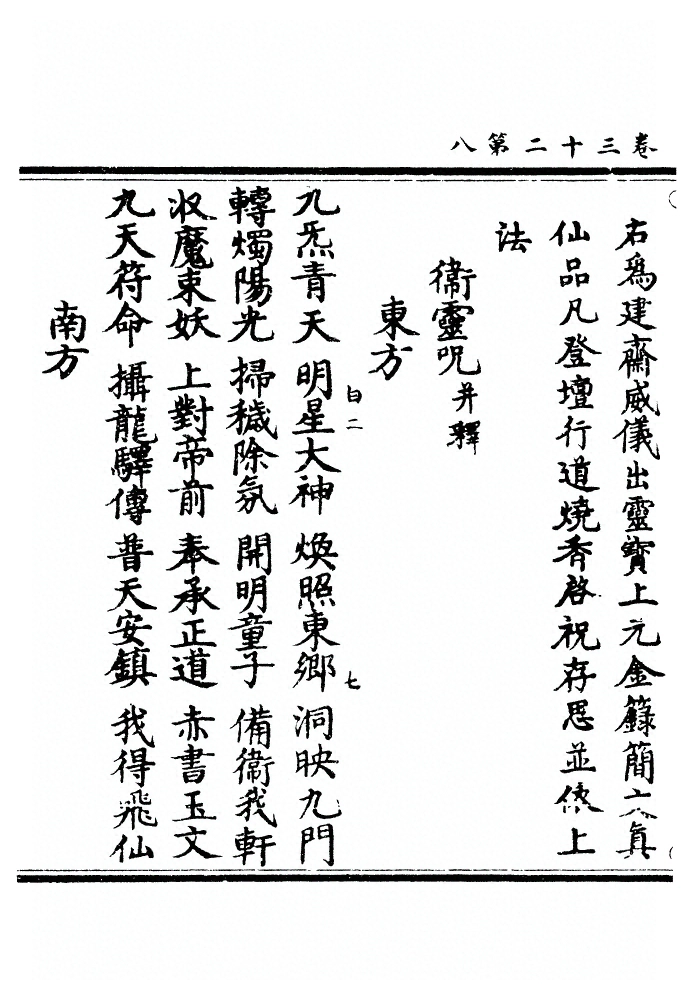 卷三十二第八
右爲建齋威儀出靈寳上元金籙簡文眞
仙品凡登壇行道燒香啓祝存思並依上
法
衞靈呪并釋
東方
九炁青天 明星大神 煥照東鄉 洞映九門
白二
七
轉燭陽光 掃穢除氛 開明童子 備衞我軒
収魔束妖 上對帝前 奉承正道 赤書玉文
九天符命 攝龍驛傳 普天安鎮 我得飛仙
南方